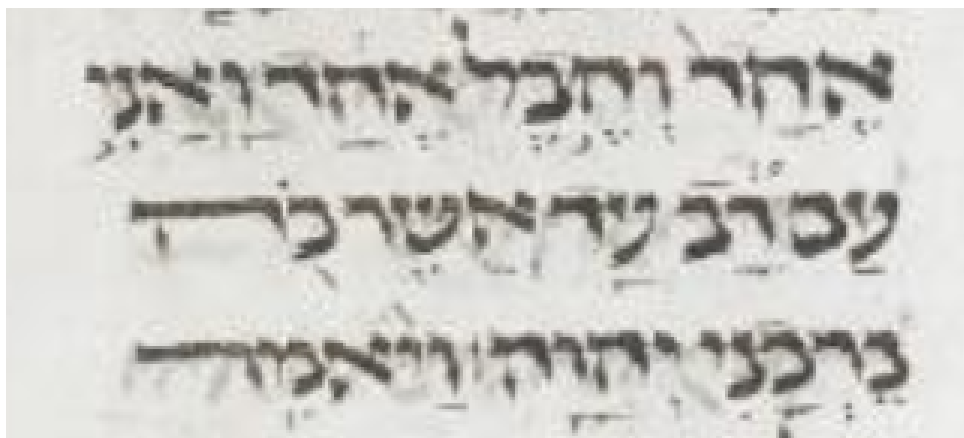 אֶחָד וְחֶבֶל אֶחָד וַאֲנִי
עַם רַב עַד אֲשֶׁר כֹה
בֵּרְכַנִי יְהוָה׃ וַיֹּאמֶר